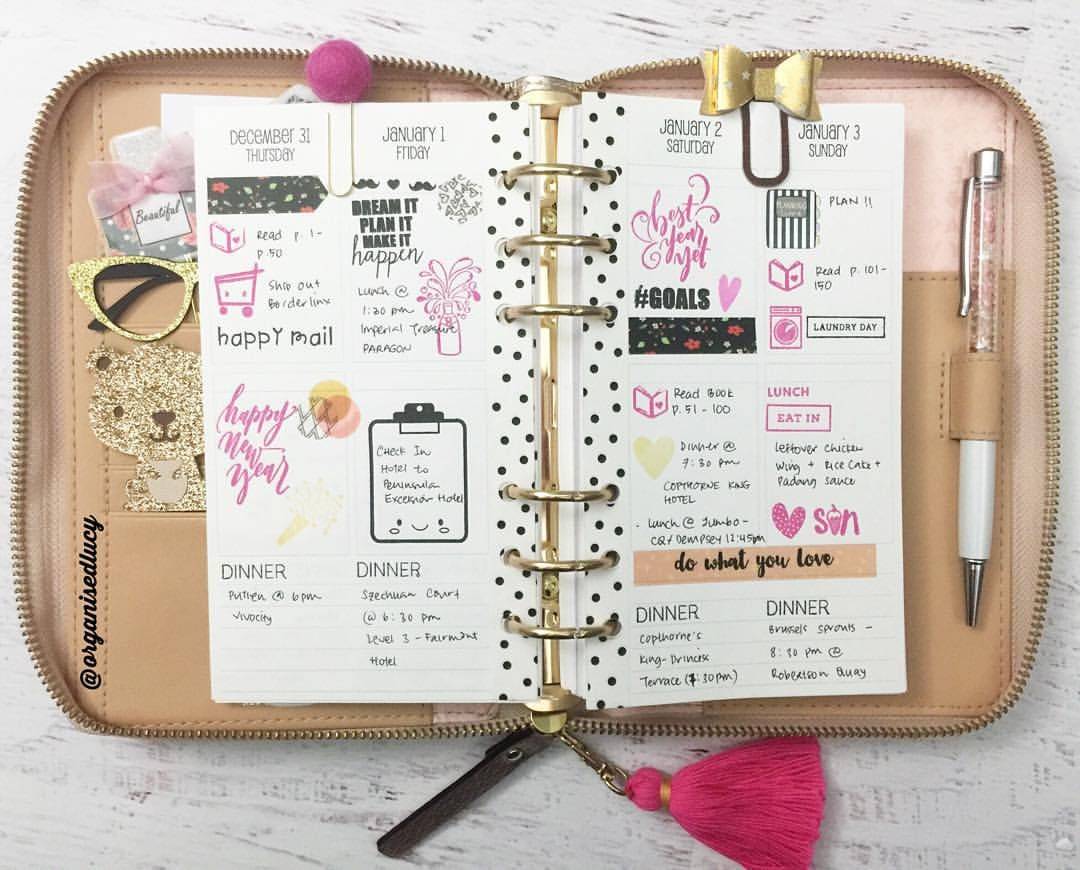 @organisedlucy
Beautiful
DECEMBER 31
THURSDAY
Read p. 1 -
p.50
Ship out
Borderlinx
happy mail
happy
new
year
DINNER
Putien @ 6pm
Vivocity
JANUARY 1
FRIDAY
DREAM IT
PLAN IT
MAKE IT
happen
Lunch @
1:30 pm
Imperial Treasure
PARAGON
Check In
Hotel to
Peninsula
Excelsior Hotel
DINNER
Szechuan Court
@ 6:30 pm
Level 3 - Fairmont
Hotel
JANUARY 2
SATURDAY
best
year
yet
#GOALS
Read Book
p. 51 - 100
Dinner @
7:30 pm
COPTHORNE KING
HOTEL
- Lunch @ Jumbo -
Dempsey 12:45pm
do what you love
DINNER
Copthorne's
King - Princess
Terrace (7:30pm)
JANUARY 3
SUNDAY
PLANNING
PLAN !!
Read p. 101 -
150
LAUNDRY DAY
LUNCH
EAT IN
leftover chicken
wing + Rice Cake +
Padang sauce
DINNER
Brussels sprouts -
8:30 pm @
Robertson Quay